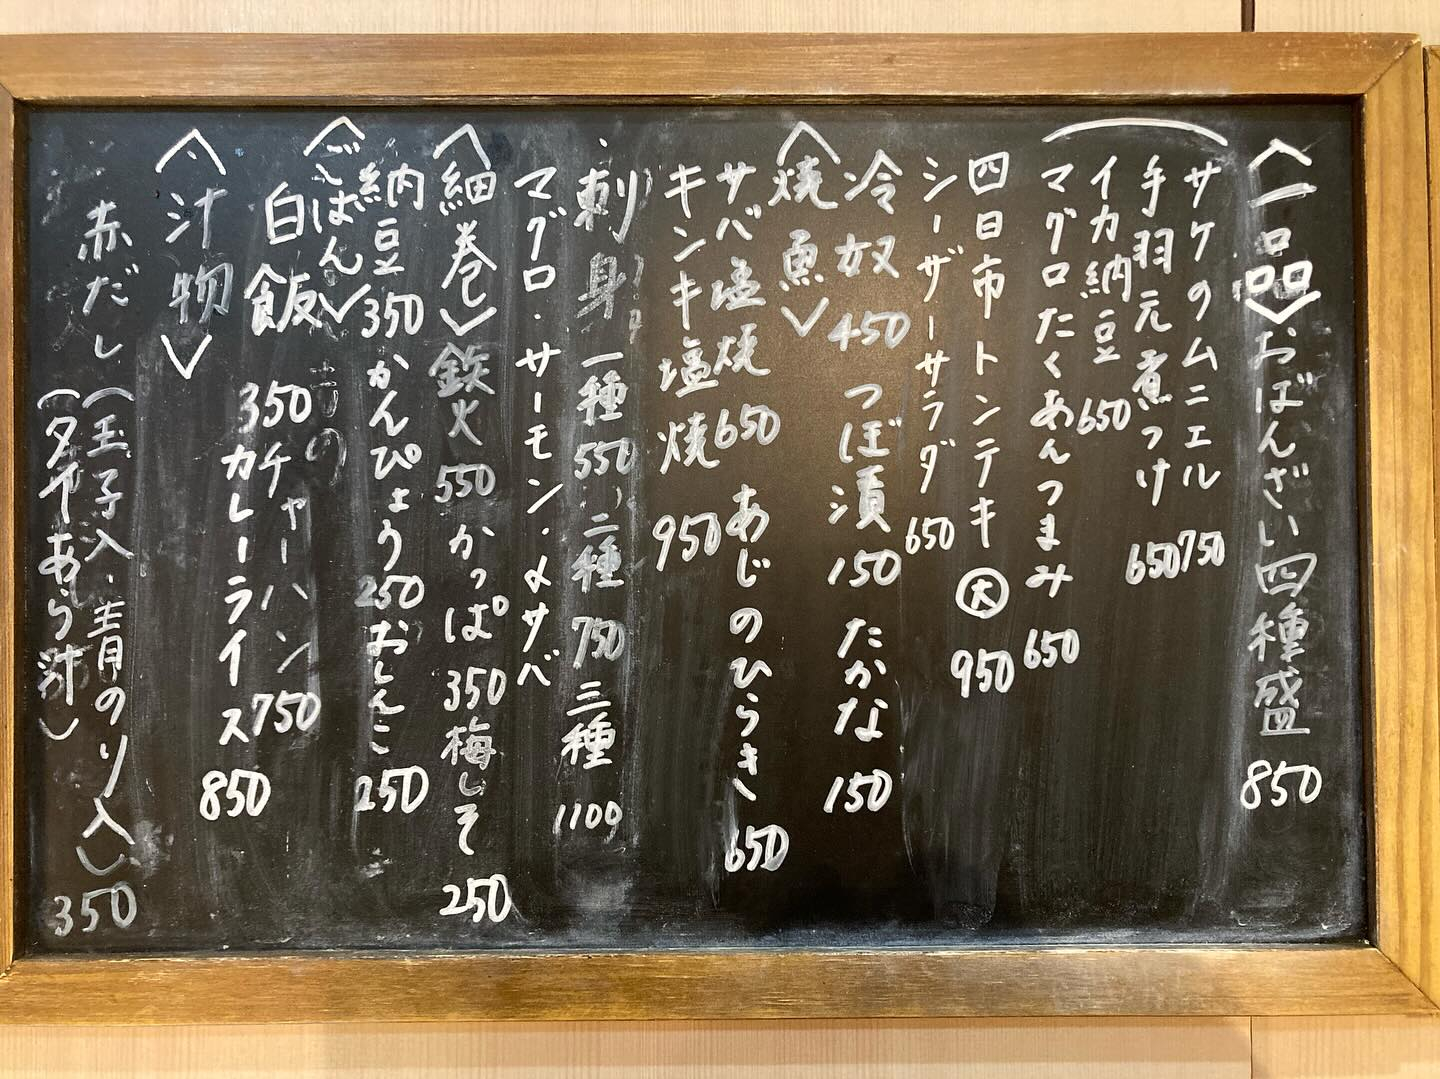 〈一品〉おばんざい四種盛 850
サケのムニエル 750
手羽元煮つけ 650
イカ納豆 650
マグロたくあんつまみ 650
四日市トンテキ 大 950
シーザーサラダ 650
冷奴 450 つぼ漬 150 たかな 150
〈焼魚〉
サバ塩焼 650 あじのひらき 650
キンキ塩焼 950
刺身 一種 550 二種 750 三種 1100
マグロ・サーモン・〆サバ
〈細巻〉鉄火 550 かっぱ 350 梅しそ 250
納豆 350 かんぴょう 250 おしんこ 250
〈ごはん〉
白飯 350 チャーハン 750
カレーライス 850
〈汁物〉
赤だし(玉子入・青のり入) 350
あら汁)